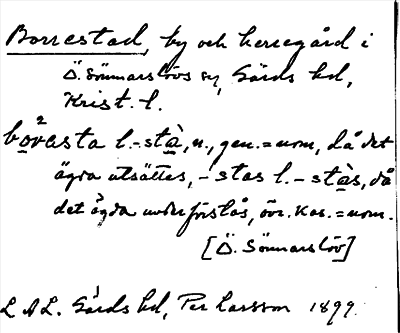 Borrestad, by och herregård i
Ö. Sönnarslövs sn, Gärds hd,
Krist. l.
bo²våsta l. -stà, n., gen. = nom., då det
ägda utsättes, -stas l. -stàs, då
det ägda underförstås, övr. kas. = nom.
[Ö. Sönnarslöv]
L A L. Gärds hd, Per Larsson 1899.